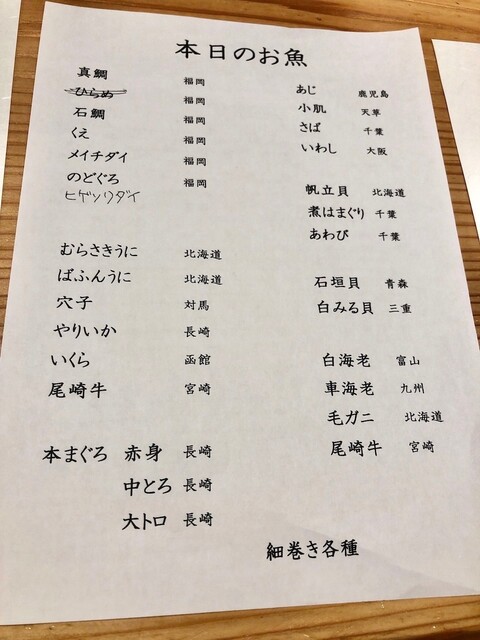 本日のお魚
真鯛 福岡
ひらめ 福岡
石鯛 福岡
くえ 福岡
メイチダイ 福岡
のどぐろ 福岡
ヒゲソリダイ
むらさきうに 北海道
ばふんうに 北海道
穴子 対馬
やりいか 長崎
いくら 函館
尾崎牛 宮崎
本まぐろ 赤身 長崎
中とろ 長崎
大トロ 長崎
あじ 鹿児島
小肌 天草
さば 千葉
いわし 大阪
帆立貝 北海道
煮はまぐり 千葉
あわび 千葉
石垣貝 青森
白みる貝 三重
白海老 富山
車海老 九州
毛ガニ 北海道
尾崎牛 宮崎
細巻き各種